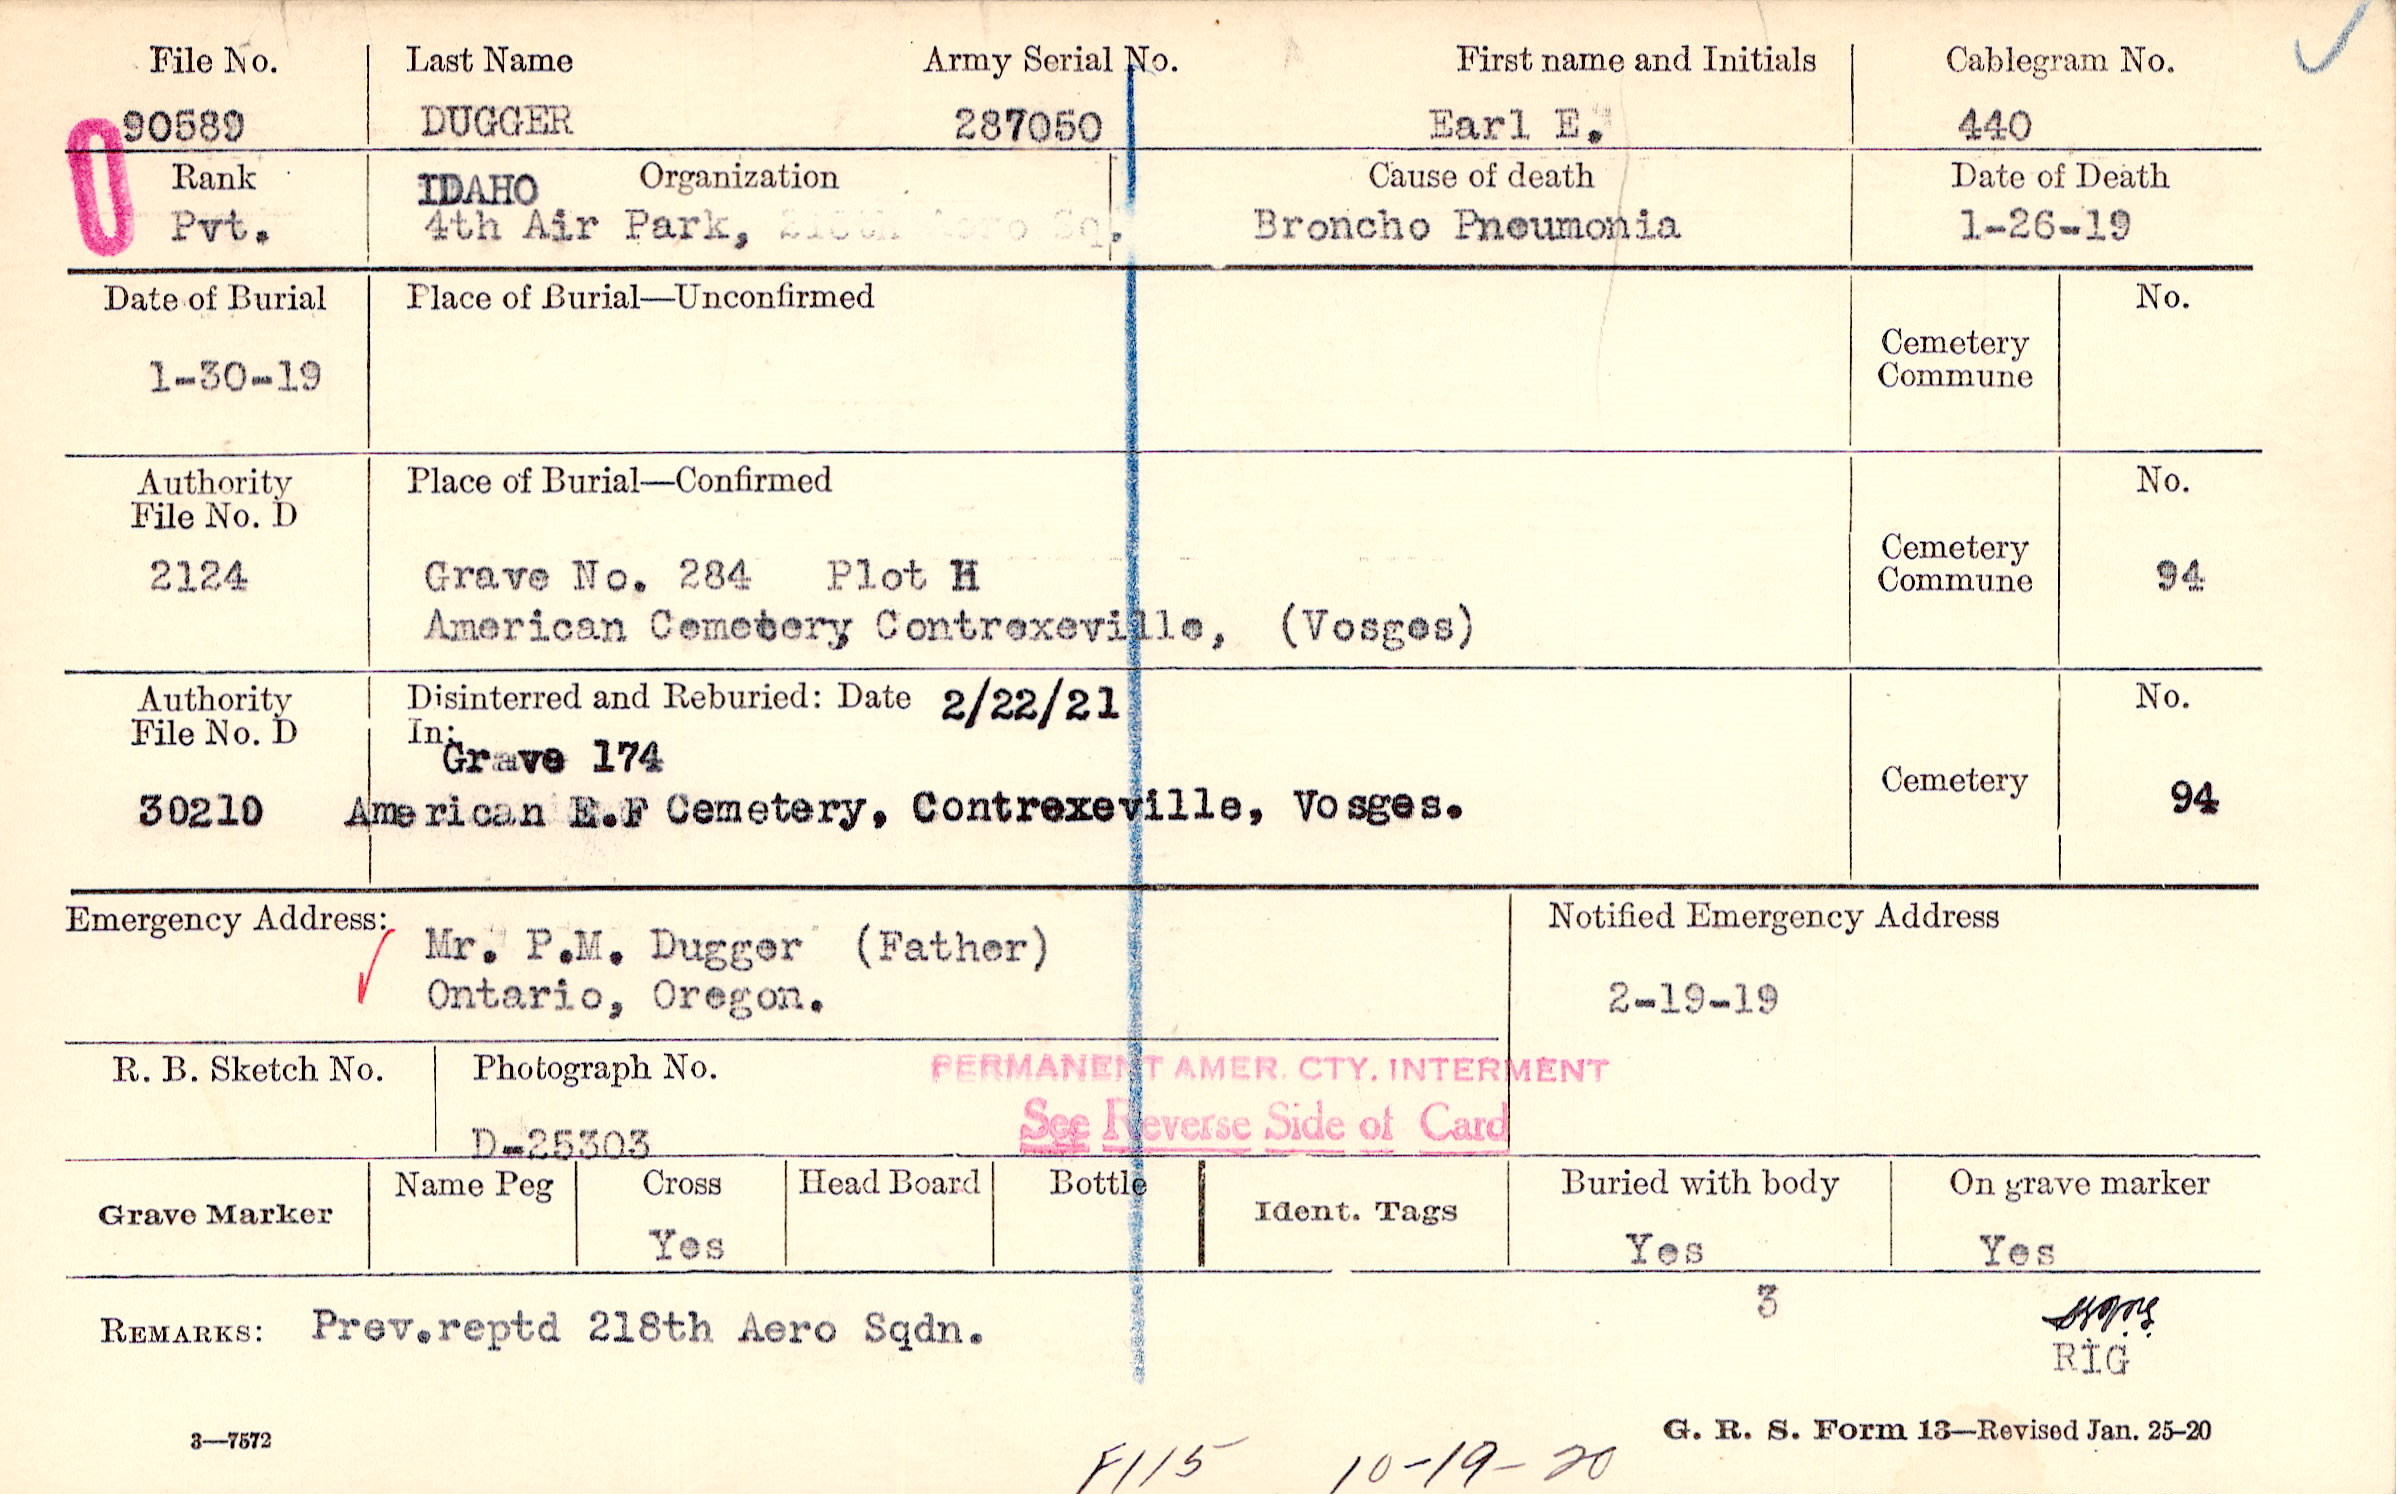 File No. Last Name Army Serial No. First name and Initials Cablegram No.
90589 DUGGER 287050 Earl E. 440
Rank IDAHO Organization Cause of death Date of Death
Pvt. 4th Air Park, 218th Aero Sq. Broncho Pneumonia 1-26-19
Date of Burial Place of Burial—Unconfirmed No.
Cemetery
Commune
1-30-19
Authority Place of Burial—Confirmed No.
File No. D
Cemetery
2124 Grave No. 284 Plot H Commune 94
American Cemetery Contrexeville, (Vosges)
Authority Disinterred and Reburied: Date 2/22/21 No.
File No. D In:
Grave 174
Cemetery
30210 American E.F Cemetery, Contrexeville, Vosges. 94
Emergency Address: Notified Emergency Address
Mr. P.M. Dugger (Father)
Ontario, Oregon. 2-19-19
R. B. Sketch No. Photograph No. PERMANENT AMER. CTY. INTERMENT
See Reverse Side of Card
D-25303
Name Peg Cross Head Board Bottle Buried with body On grave marker
Grave Marker Ident. Tags
Yes Yes Yes
3
REMARKS: Prev.reptd 218th Aero Sqdn.
RIG
3—7572 G. R. S. Form 13—Revised Jan. 25-20
F115 10-19-20